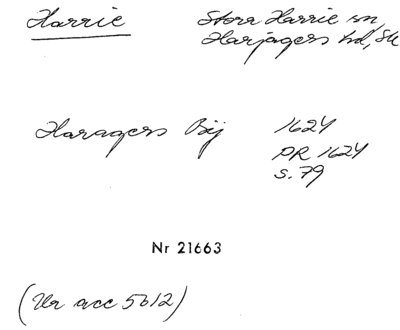 Harrie Stora Harrie sn,
Harjagers hd, Sk
Haragers Bÿ 1624
PR 1624
s. 79
Nr 21663
(Ur acc 5612)